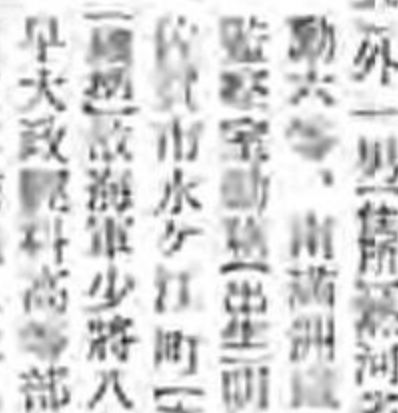 外一男【住所】熱河省
勲六等、南満洲
監察室勤務【出生】明
佐賀市水ケ江町【
【経歴】故海軍少将八
早大政経科高等部